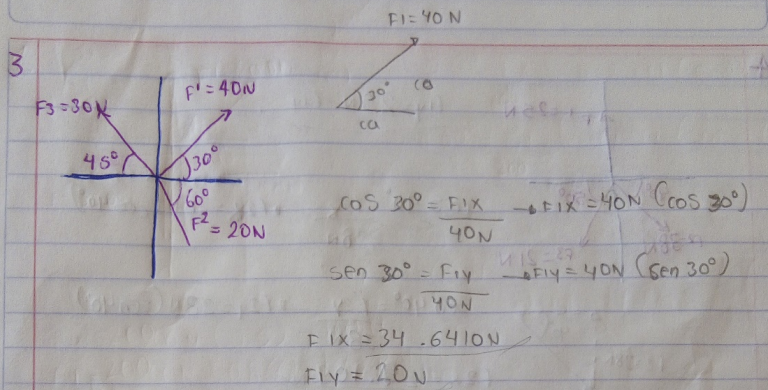 F1=40N
3
F1=40N
F3=30N
30°
ca
co
45°
30°
60°
F2=20N
cos 30° = F1x/40N → F1x=40N (cos 30°)
sen 30° = F1y/40N → F1y=40N (sen 30°)
F1x = 34.6410N
F1y = 20N